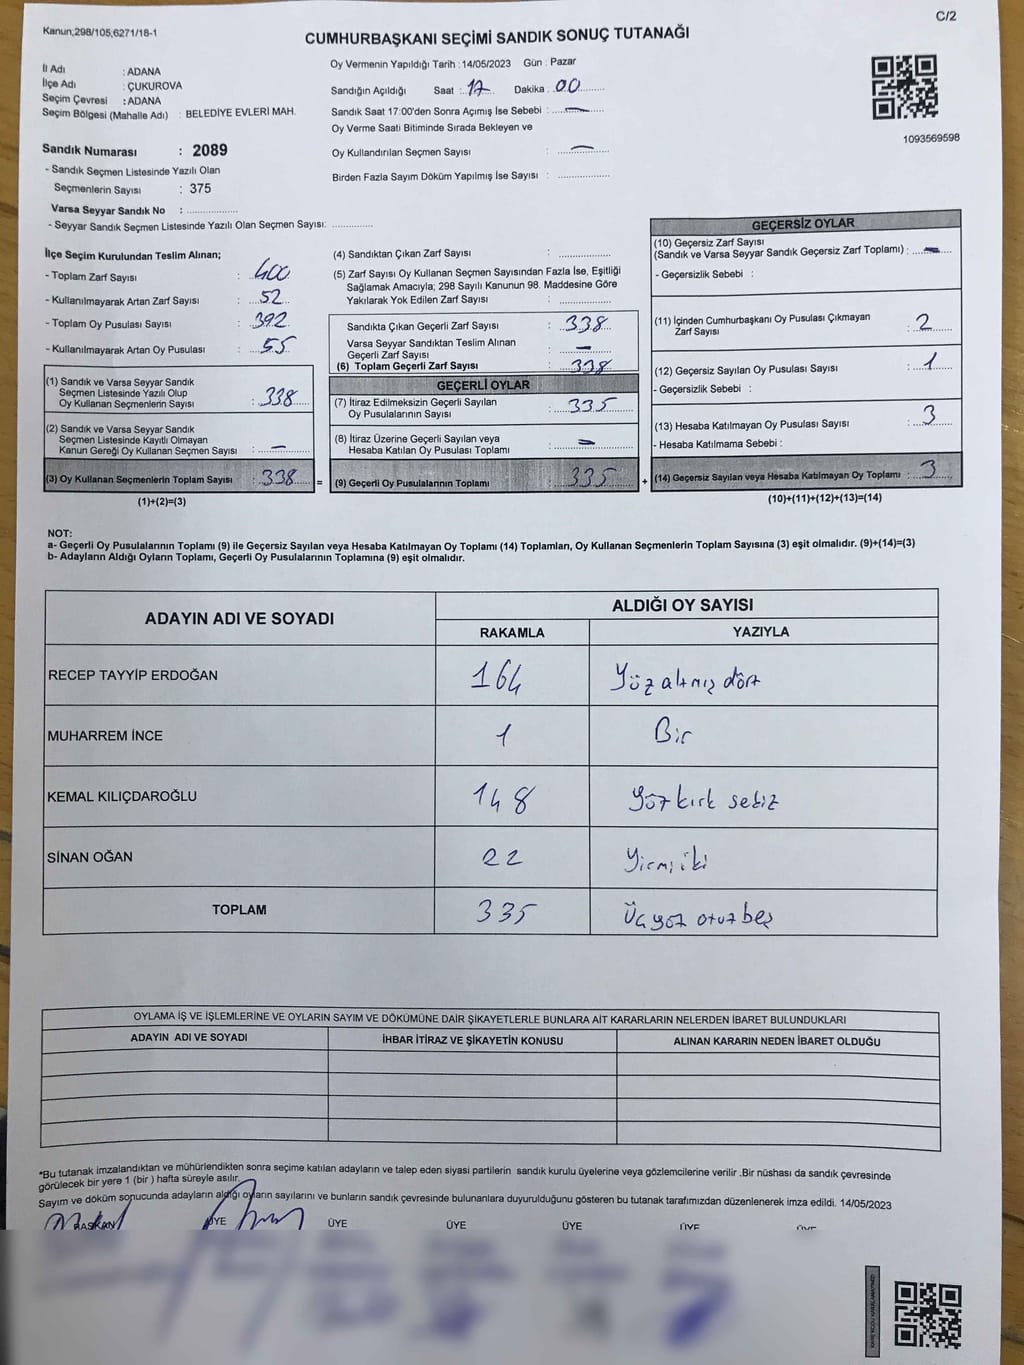 C/2
Kanun;298/105;6271/18-1
CUMHURBAŞKANI SEÇİMİ SANDIK SONUÇ TUTANAĞI
İl Adı : ADANA
İlçe Adı : ÇUKUROVA
Seçim Çevresi : ADANA
Seçim Bölgesi (Mahalle Adı) : BELEDİYE EVLERİ MAH.
Oy Vermenin Yapıldığı Tarih : 14/05/2023 Gün : Pazar
Sandığın Açıldığı Saat : 17 Dakika : 00
Sandık Saat 17:00'den Sonra Açımış İse Sebebi : —
Oy Verme Saati Bitiminde Sırada Bekleyen ve
Oy Kullandırılan Seçmen Sayısı : —
Birden Fazla Sayım Döküm Yapılmış İse Sayısı :
1093569598
Sandık Numarası : 2089
- Sandık Seçmen Listesinde Yazılı Olan
Seçmenlerin Sayısı : 375
Varsa Seyyar Sandık No :
- Seyyar Sandık Seçmen Listesinde Yazılı Olan Seçmen Sayısı:
İlçe Seçim Kurulundan Teslim Alınan;
- Toplam Zarf Sayısı : 400
- Kullanılmayarak Artan Zarf Sayısı : 52
- Toplam Oy Pusulası Sayısı : 392
- Kullanılmayarak Artan Oy Pusulası : 55
(1) Sandık ve Varsa Seyyar Sandık
Seçmen Listesinde Yazılı Olup
Oy Kullanan Seçmenlerin Sayısı : 338
(2) Sandık ve Varsa Seyyar Sandık
Seçmen Listesinde Kayıtlı Olmayan
Kanun Gereği Oy Kullanan Seçmen Sayısı : —
(3) Oy Kullanan Seçmenlerin Toplam Sayısı : 338 =
(1)+(2)=(3)
(4) Sandıktan Çıkan Zarf Sayısı :
(5) Zarf Sayısı Oy Kullanan Seçmen Sayısından Fazla İse, Eşitliği
Sağlamak Amacıyla; 298 Sayılı Kanunun 98. Maddesine Göre
Yakılarak Yok Edilen Zarf Sayısı :
Sandıkta Çıkan Geçerli Zarf Sayısı : 338
Varsa Seyyar Sandıktan Teslim Alınan
Geçerli Zarf Sayısı : —
(6) Toplam Geçerli Zarf Sayısı : 338
GEÇERLİ OYLAR
(7) İtiraz Edilmeksizin Geçerli Sayılan
Oy Pusulalarının Sayısı : 335
(8) İtiraz Üzerine Geçerli Sayılan veya
Hesaba Katılan Oy Pusulası Toplamı : —
(9) Geçerli Oy Pusulalarının Toplamı : 335 +
GEÇERSİZ OYLAR
(10) Geçersiz Zarf Sayısı
(Sandık ve Varsa Seyyar Sandık Geçersiz Zarf Toplamı) : —
- Geçersizlik Sebebi :
(11) İçinden Cumhurbaşkanı Oy Pusulası Çıkmayan
Zarf Sayısı : 2
(12) Geçersiz Sayılan Oy Pusulası Sayısı : 1
- Geçersizlik Sebebi :
(13) Hesaba Katılmayan Oy Pusulası Sayısı : 3
- Hesaba Katılmama Sebebi :
(14) Geçersiz Sayılan veya Hesaba Katılmayan Oy Toplamı : 3
(10)+(11)+(12)+(13)=(14)
NOT:
a- Geçerli Oy Pusulalarının Toplamı (9) ile Geçersiz Sayılan veya Hesaba Katılmayan Oy Toplamı (14) Toplamları, Oy Kullanan Seçmenlerin Toplam Sayısına (3) eşit olmalıdır. (9)+(14)=(3)
b- Adayların Aldığı Oyların Toplamı, Geçerli Oy Pusulalarının Toplamına (9) eşit olmalıdır.
ADAYIN ADI VE SOYADI
ALDIĞI OY SAYISI
RAKAMLA YAZIYLA
RECEP TAYYİP ERDOĞAN 164 Yüz altmış dört
MUHARREM İNCE 1 Bir
KEMAL KILIÇDAROĞLU 148 Yüz kırk sekiz
SİNAN OĞAN 22 Yirmi iki
TOPLAM 335 Üç yüz otuz beş
OYLAMA İŞ VE İŞLEMLERİNE VE OYLARIN SAYIM VE DÖKÜMÜNE DAİR ŞİKAYETLERLE BUNLARA AİT KARARLARIN NELERDEN İBARET BULUNDUKLARI
ADAYIN ADI VE SOYADI İHBAR İTİRAZ VE ŞİKAYETİN KONUSU ALINAN KARARIN NEDEN İBARET OLDUĞU
*Bu tutanak imzalandıktan ve mühürlendikten sonra seçime katılan adayların ve talep eden siyasi partilerin sandık kurulu üyelerine veya gözlemcilerine verilir .Bir nüshası da sandık çevresinde
görülecek bir yere 1 (bir ) hafta süreyle asılır.
Sayım ve döküm sonucunda adayların aldığı oyların sayılarını ve bunların sandık çevresinde bulunanlara duyurulduğunu gösteren bu tutanak tarafımızdan düzenlenerek imza edildi. 14/05/2023
BAŞKAN ÜYE ÜYE ÜYE ÜYE ÜYE ÜYE